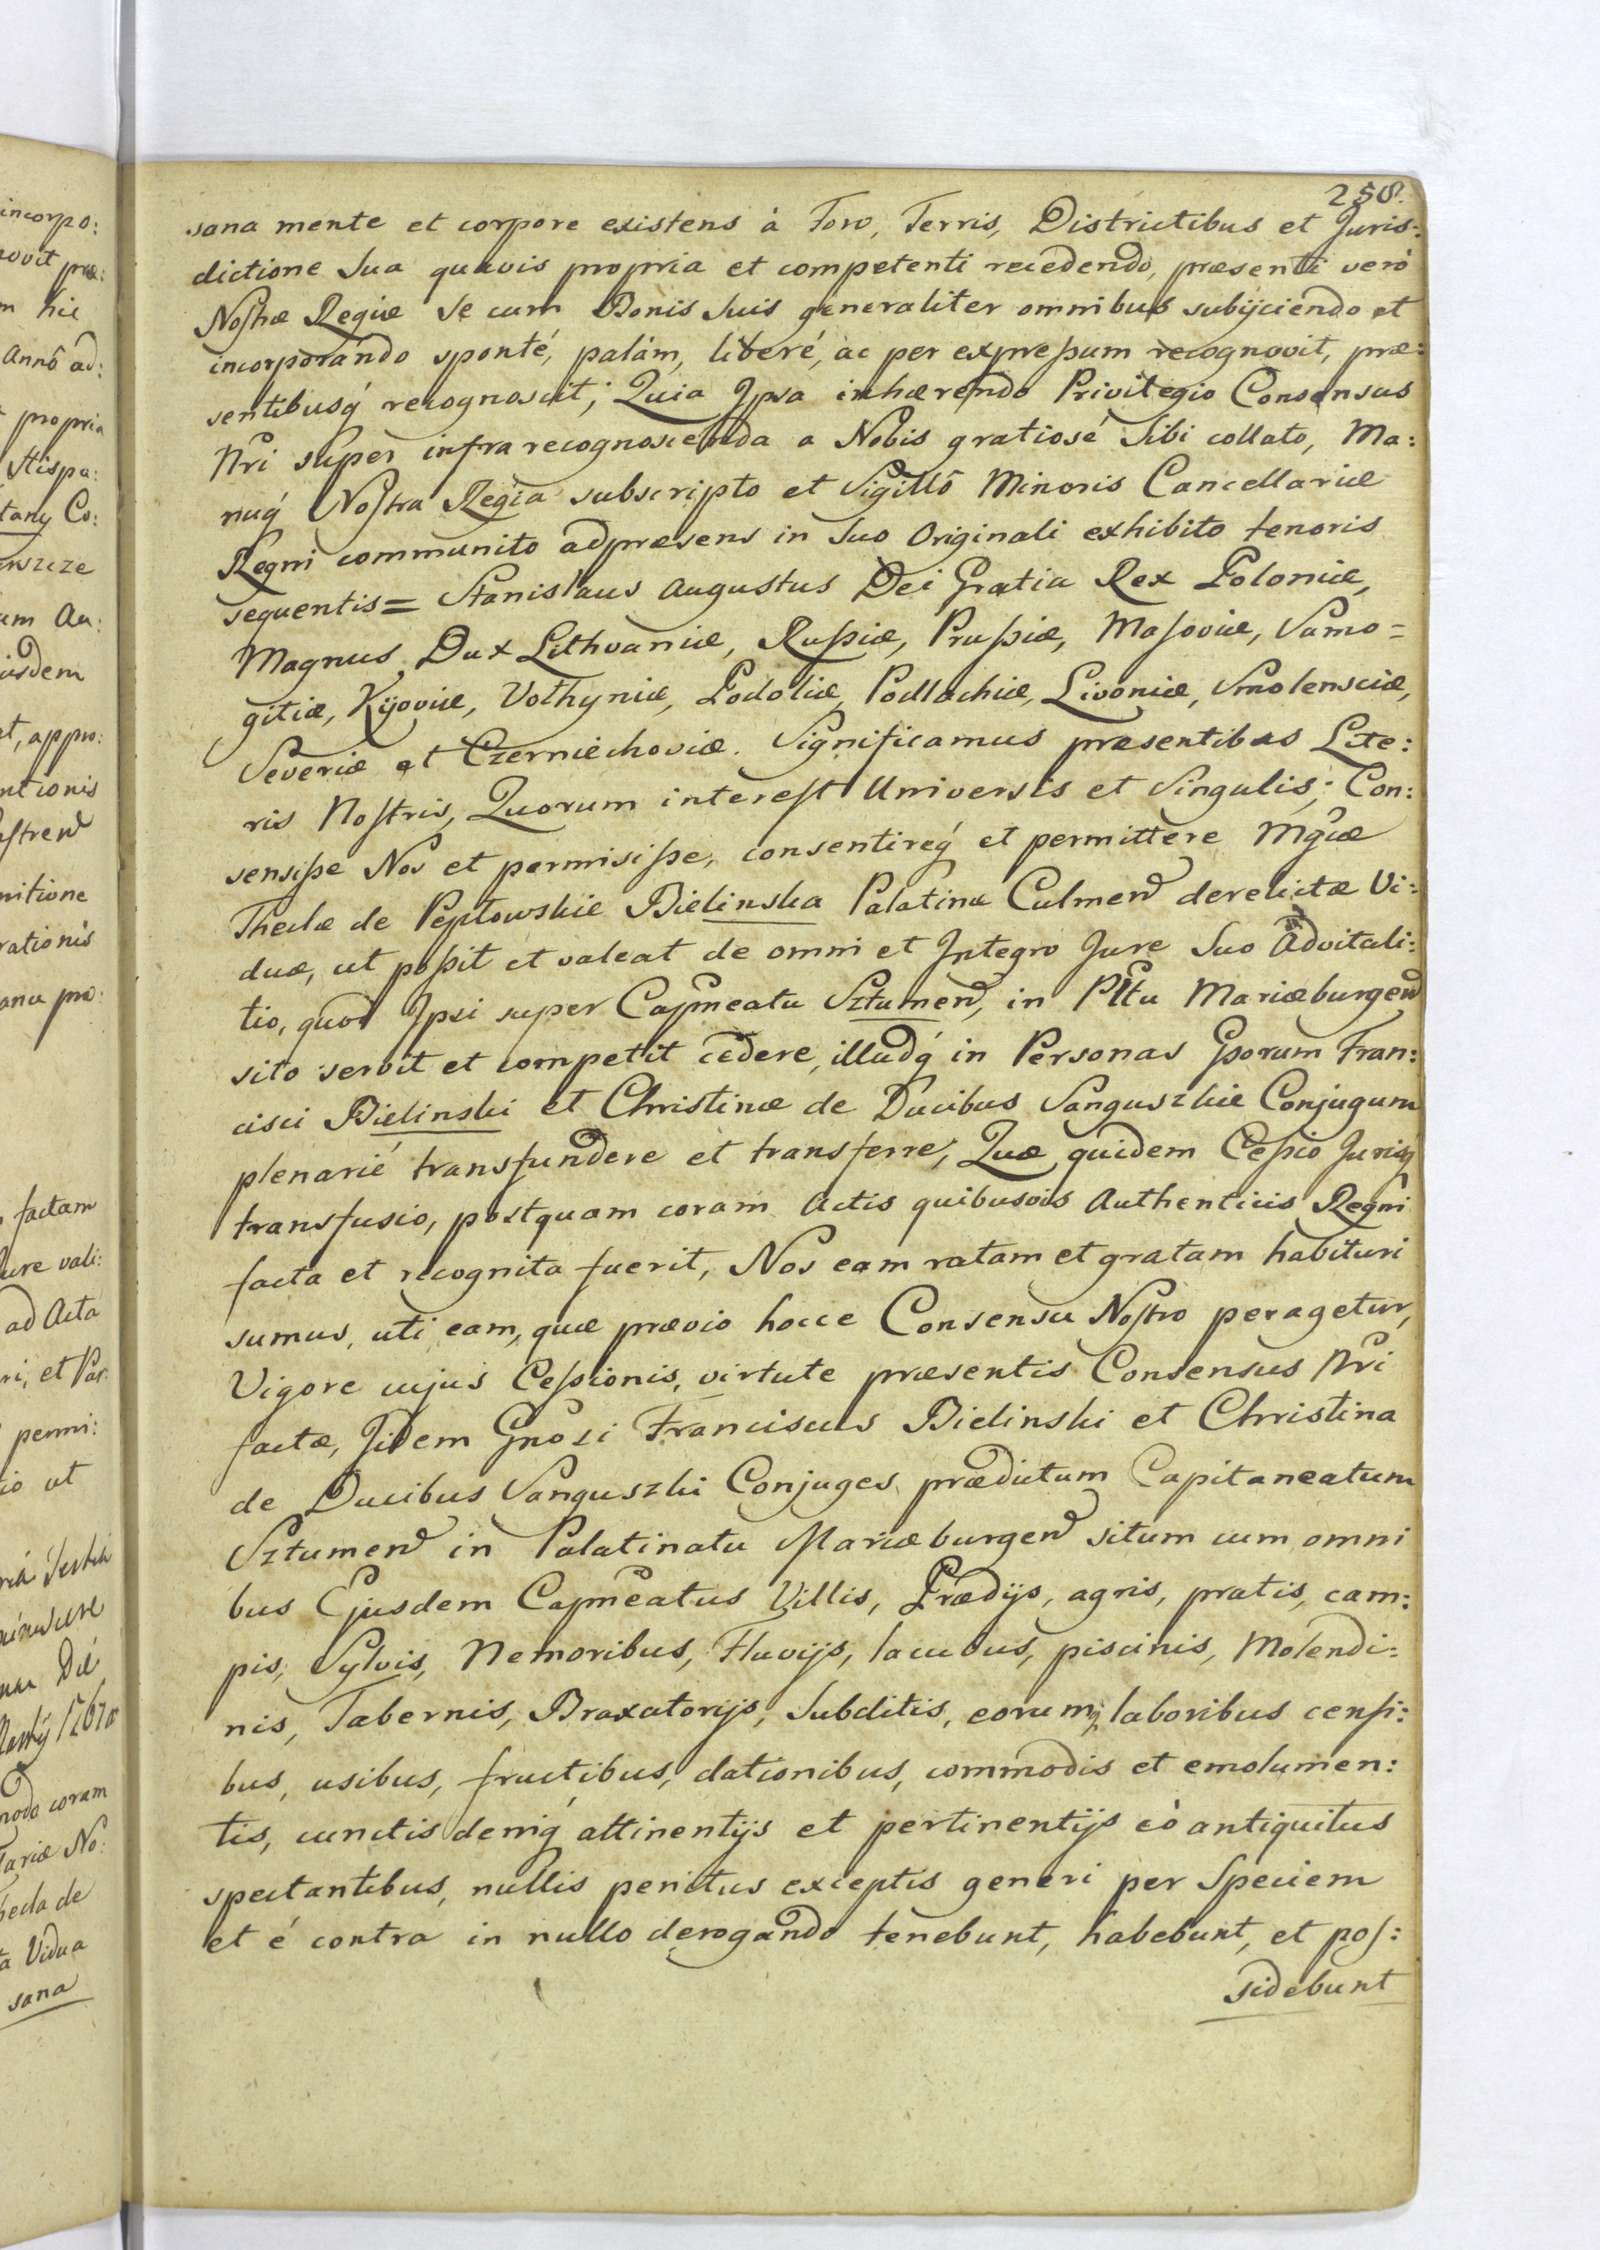 258.
sana mente et corpore existens à Foro, Terris, Districtibus et Juris:
dictione Sua quavis propria et competenti recedendo, præsenti verò
Nostræ Regiæ Se cum Bonis Suis generaliter omnibus subijciendo et
incorporando sponté, palám, liberé, ac per expressum recognovit, præ:
sentibusq́ recognoscit; Quia Ipsa inhærendo Privilegio Consensus
Nri super infra recognoscenda a Nobis gratiosé Sibi collato, Ma:
nuq́ Nostra Regia subscripto et Sigillô Minoris Cancellariæ
Regni communito adpræsens in Suo Originali exhibito tenoris
sequentis = Stanislaus Augustus Dei Gratia Rex Poloniæ,
Magnus Dux Lithvaniæ, Russiæ, Prussiæ, Masoviæ, Samo =
gitiæ, Kijoviæ, Volhyniæ, Podoliæ, Podlachiæ, Livoniæ, Smolensciæ,
Severiæ et Czerniechoviæ. Significamus præsentibus Lite:
ris Nostris, Quorum interest Universis et Singulis; Con:
sensisse Nos et permisisse, consentireq́ et permittere Mg̃cæ
Theclæ de Pepłowskie Bielinska Palatinæ Culmen̄ derelictæ Vi:
duæ, ut possit et valeat de omni et Integro Jure Suo Advitali:
tio, quod Ipsi super Capneatu Sztumen̄, in Pltu Mariæburgen̄
sito servit et competit cedere, illudq́ in Personas Gsorum Fran:
cisci Bielinski et Christinæ de Ducibus Sanguszkie Conjugum
plenarié transfundere et transferre; Quæ quidem Cessio Jurisq́
transfusio, postquam coram Actis quibusvis Authenticis Regni
facta et recognita fuerit, Nos eam ratam et gratam habituri
sumus, uti eam, quæ prævio hocce Consensu Nostro peragetur,
Vigore cujus Cessionis, virtute præsentis Consensus Nri
factæ, Jidem Gnosi Franciscus Bielinski et Christina
de Ducibus Sanguszki Conjuges prædictum Capitaneatum
Sztumen̄ in Palatinatu Mariæburgen̄ situm cum omni
bus Ejusdem Capneatus Villis, Prædijs, agris, pratis, cam:
pis, Sylvis, Nemoribus, Fluvijs, lacubus, piscinis, Molendi:
nis, Tabernis, Braxatorijs, Subditis, eorumq́ laboribus censi:
bus, usibus, fructibus, dationibus, commodis et emolumen:
tis, cunctis deniq́ attinentijs et pertinentijs eò antiquitus
spectantibus, nullis penitus exceptis generi per Speciem
et é contra in nullo derogando tenebunt, habebunt, et pos:
sidebunt